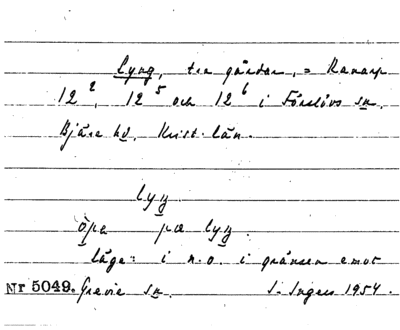 Lyng, tre gårdar, = Ranarp
12², 12⁵ och 12⁶ i Förslövs sn,
Bjäre hd. Krist. län.
lyŋ
öpa på lyŋ
läge: i n.o. i gränsen emot
Nr 5049. Grevie sn. S. Ingers 1954.